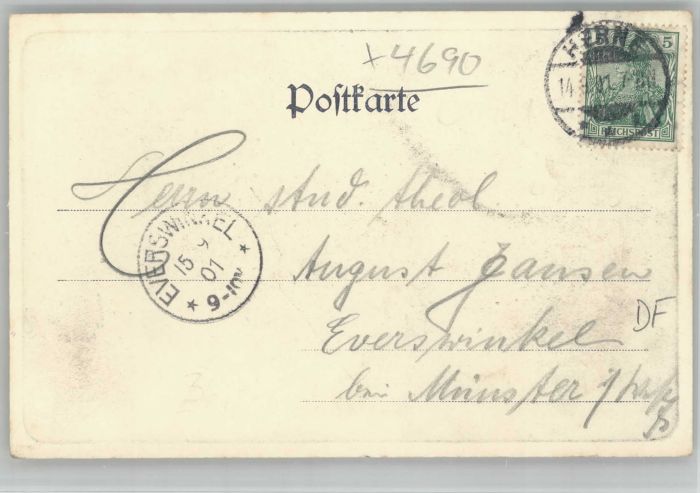 +4690
Postkarte
HERNE
14
5
REICHSPOST
Herrn stud. theol
August Jansen
Everswinkel
bei Münster i/
EVERSWINKEL
15 9
01
* 9-10V *
DF
3